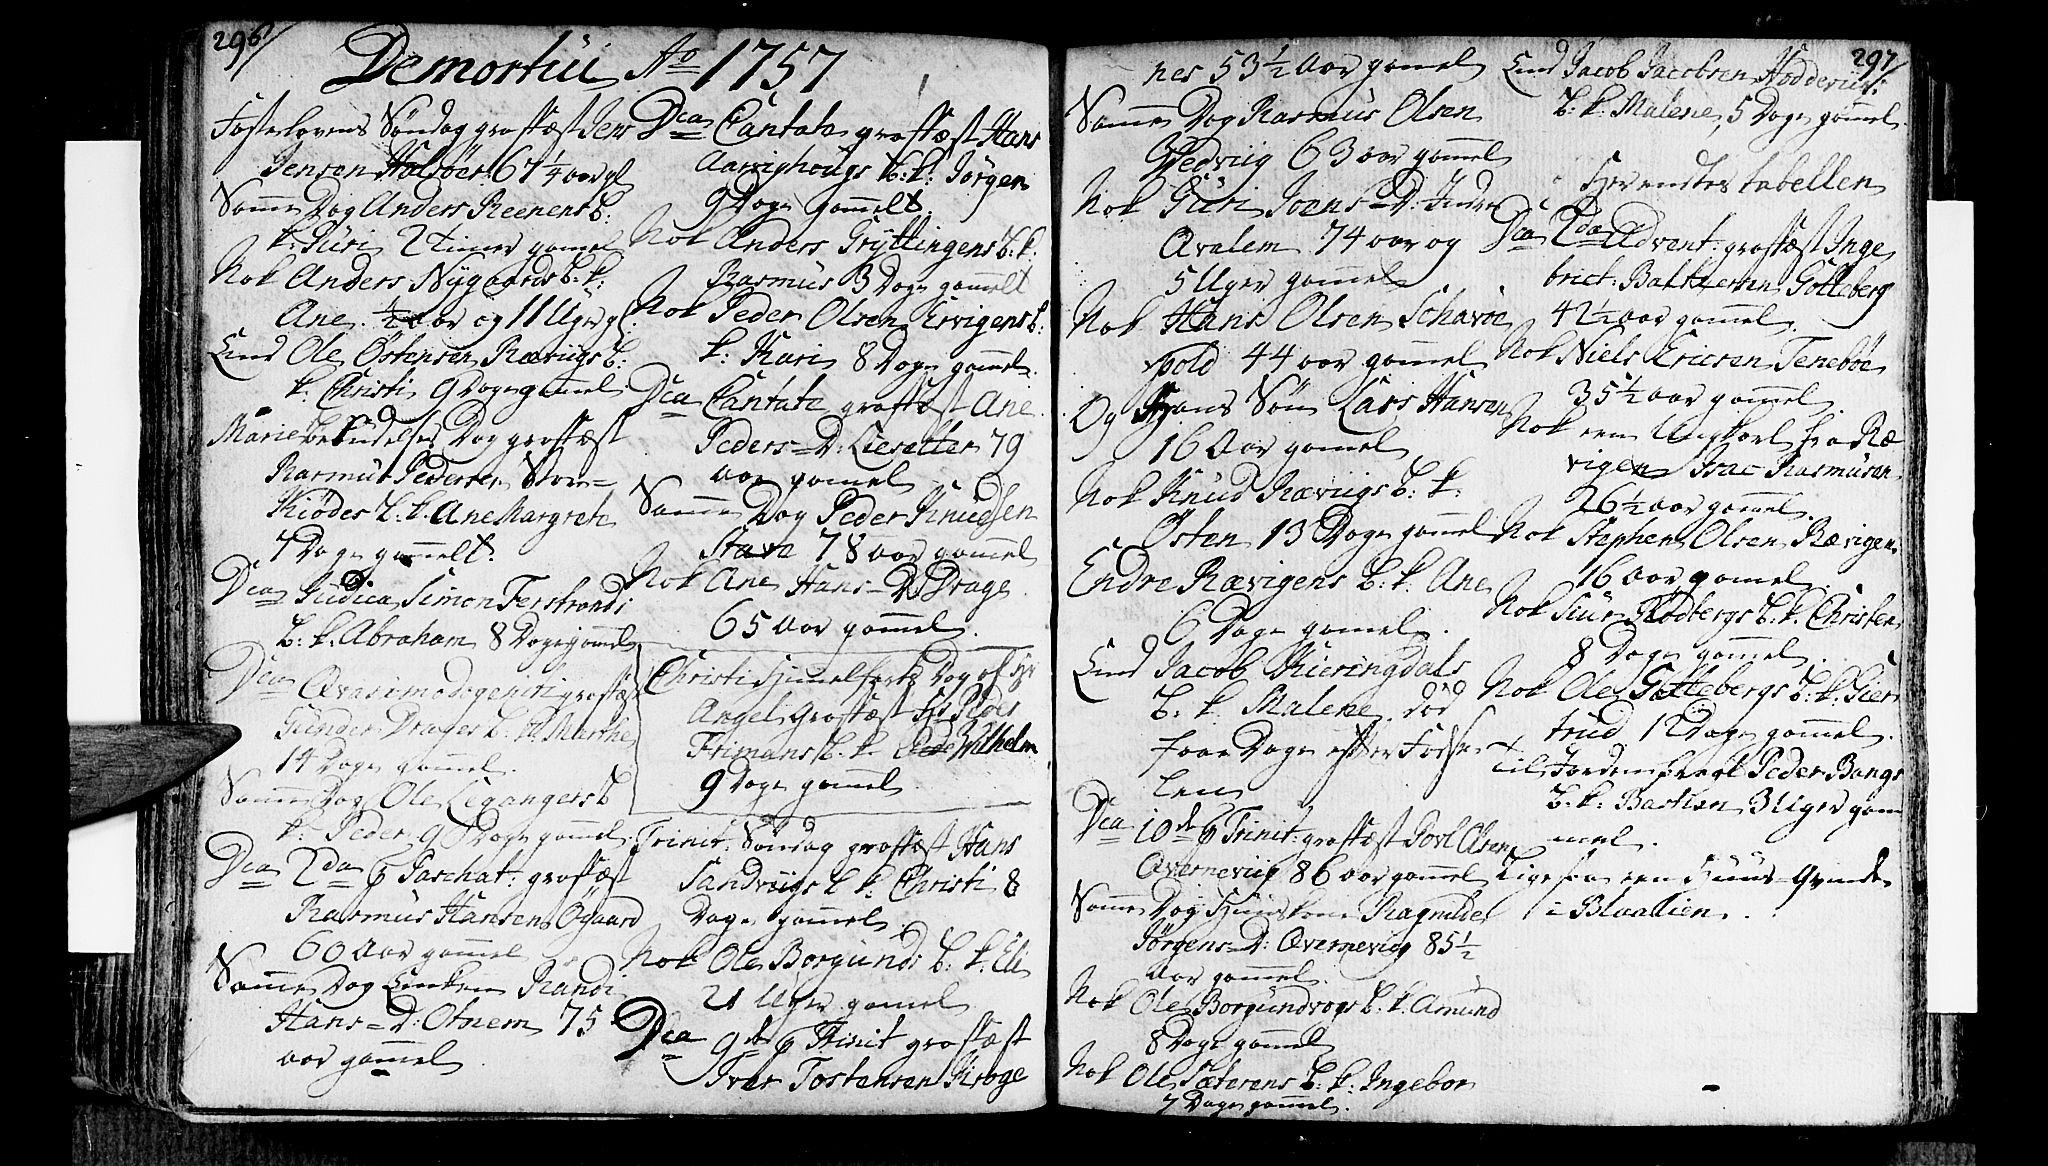 296
Demortui Ao 1757
Fastelavens Søndag graffæst Iens
Jensen Holsøer 67 1/4 aar gl
Samme Dag Anders Reenens b:
k: Guri 2 timer gamel
Nok Anders Nygaards b: k:
Ane 1/2 aar og 11 Uger gl
End Ole Østensen Rævigs b:
k. Christi 9 Dage gamel
Mariæ bekudelses Dag graffæst
Rasmus Pedersen
b. k. Ane Margrete
7 Dage gammelt.
Dca Judica Simon Ferstrands
b. k. Abraham 8 Dage gamel
Dca Qvasimodogeniti graffæst
Gunder Drages b. k. Marthe
14 Dage gammel.
Samme Dag Ole Legangers b
k. Peder 9 Dage gamel.
Dca 2da p Paschat: graffæst
Rasmus Hansen Øgaard
60 Aar gammel
Samme Dag Enken Randi
Hans-D: Otnem 75
aar gammel
Dca Cantate graffæst Hans
Aarvighougs b: k: Jørgen
9 Dage gammelt
Nok Anders Gryttingens b: k:
Rasmus 3 Dage gammelt
Nok Peder Olsen Ervigens b:
k: Kari 8 Dage gammel.
Dca Cantate graffæst Ane
Peders-D: Liesetter 79
aar gammel
Samme Dag Peder Knudsen
Stave 78 aar gammel
Nok Ane Hans-D Drage
65 Aar gammel.
Christi Himmelfarts Dag
graffæst
Frimans b. k. Wilhelm
9 Dage gammel.
Trinit: Søndag graffæst Hans
Sandviigs b. k. Christi 8
Dage gammel
Nok Ole Borgunds b. k. Eli
Uger gamel
Dca 9de p Trinit graffæst
Iver Tostensen Krage
297
nes 53 1/2 Aar gamel
Samme Dag Rasmus Olsen
Hedviig 63 aar gammel
Nok Guri Joens-D: Indre
Qvalem 74 aar og
5 Uger gammel
Nok Hans Olsen Schavøe
pold 44 aar gammel
Og Hans Søn Lars Hansen
16 Aar gamel
Nok Knud Rævigs b: k:
Østen 13 Dage gammel
Endre Rævigens b: k. Ane
6 Dage gamel.
End Jacob Kieringdals
b. k. Malene død
faae Dage efter Fødse-
len
Dca 10de p Trinit: graffæst Povl Olsen
Qverneviig 86 aar gammel
Samme Dag Huuskone Ragnilde
Jørgens-D: Qverneviig 85 1/2
aar gammel.
Nok Ole Borgundvogs b: k. Amund
8 Dage gammel
Nok Ole Sæterens b: k: Ingebor
7 Dage gammel.
End Jacob Jacobsen Hoddeviig
b: k. Malene, 5 Dage gammel.
Her endtes tabellen
Dca 2da Advent: graffæst Inge
brict: Baltzersen Gotteberg
42 1/2 aar gammel.
Nok Niels Ericsen Tenebøe
35 1/2 aar gammel.
Nok een Ungkarl fra Ræ
vigen Isac Rasmusen
26 1/2 aar gammel.
Nok Stephen Olsen Rævigen
16 aar gamel.
Nok Rødbergs b. k. Christen
8 Dage gammel.
Nok Ole Gottebergs b. k. Gier
trud 12 Dage gammel.
til Iorden bragt Peder Bangs
b. k: Bastian 3 Uger gam
mel.
Ligesaa een Huus-Qvinde
i Blaalien.